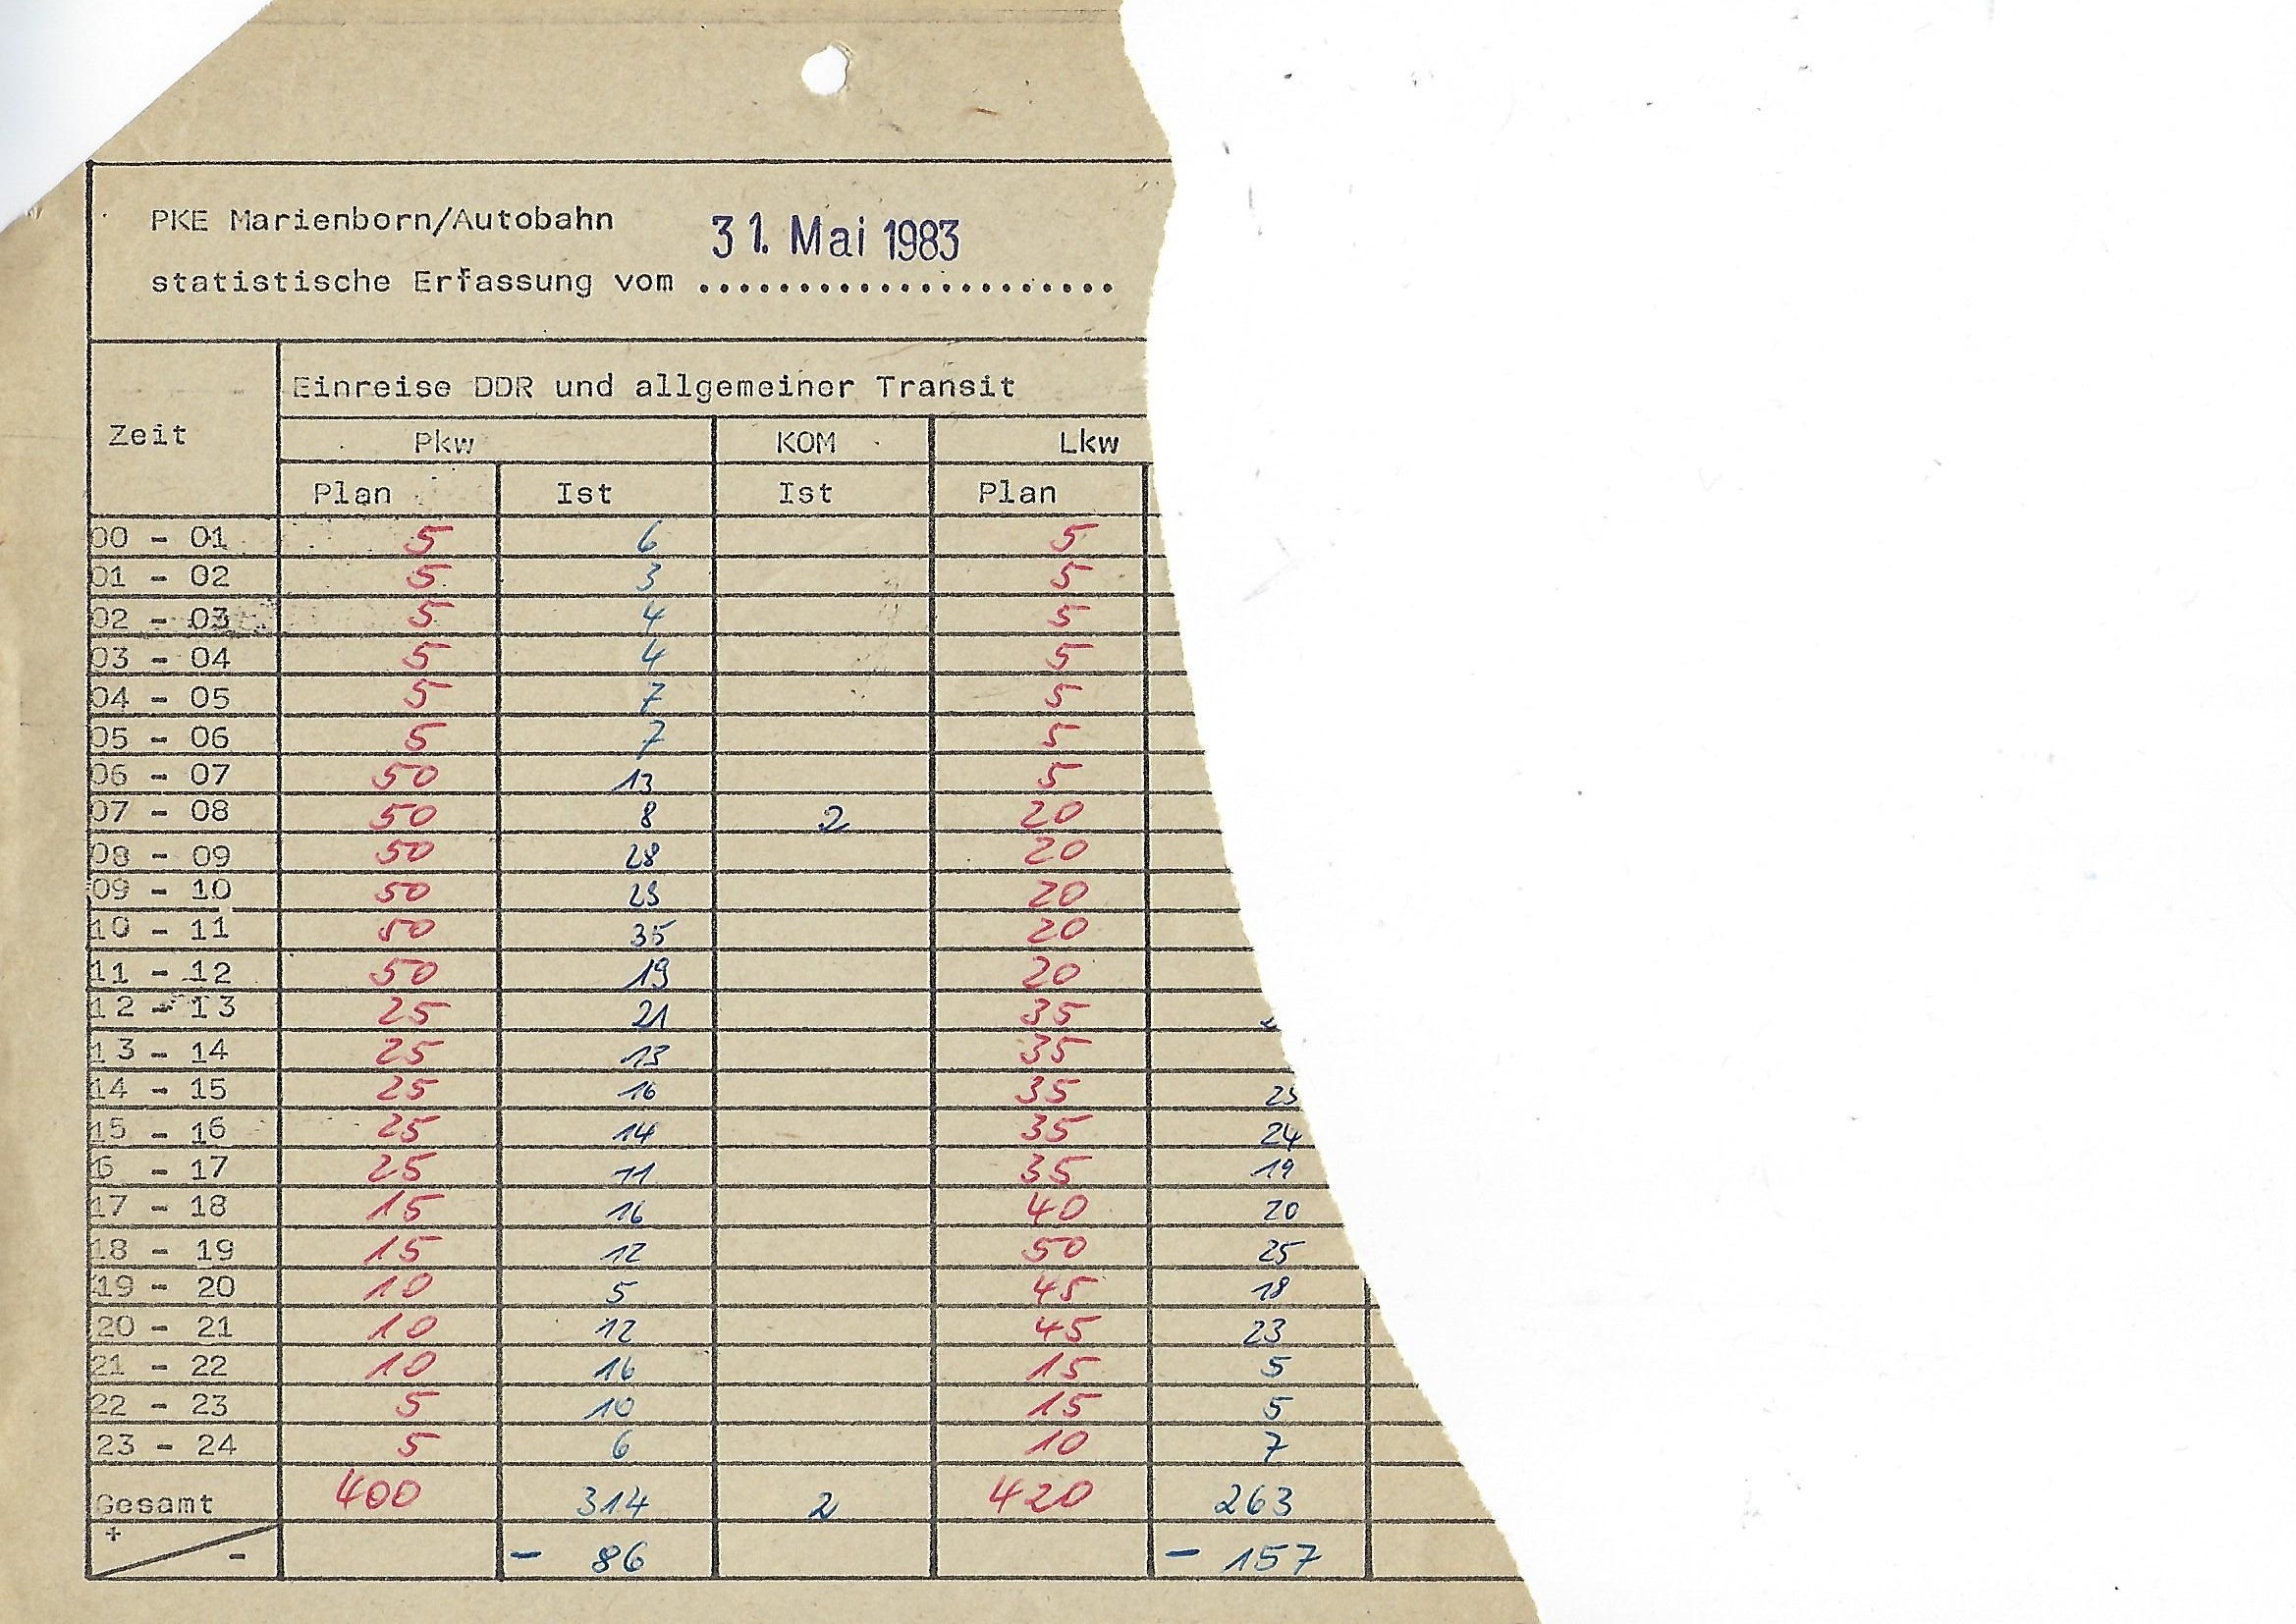 PKE Marienborn/Autobahn
31. Mai 1983
statistische Erfassung vom .....................
Zeit Einreise DDR und allgemeiner Transit
Pkw KOM Lkw
Plan Ist Ist Plan
00 - 01 5 6 5
01 - 02 5 3 5
02 - 03 5 4 5
03 - 04 5 4 5
04 - 05 5 7 5
05 - 06 5 7 5
06 - 07 50 13 5
07 - 08 50 8 2 20
08 - 09 50 28 20
09 - 10 50 20
10 - 11 50 35 20
11 - 12 50 19 20
12 - 13 25 21 35
13 - 14 25 13 35
14 - 15 25 16 35
15 - 16 25 14 35 24
6 - 17 25 11 35 19
17 - 18 15 16 40 20
18 - 19 15 12 50 25
19 - 20 10 5 45 18
20 - 21 10 12 45 23
21 - 22 10 16 15 5
22 - 23 5 10 15 5
23 - 24 5 6 10 7
Gesamt 400 314 2 420 263
+ - - 86 - 157